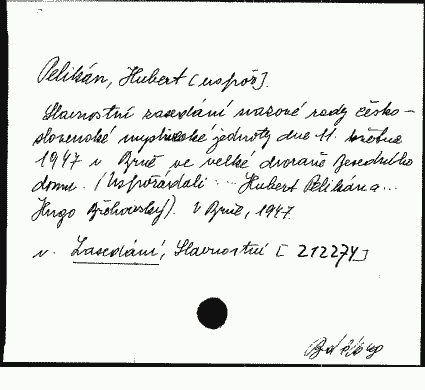 Pelikán, Hubert [uspoř].
Slavnostní zasedání svazové rady česko-
slovenské myslivecké jednoty dne 11. května
1947 v Brně ve velké dvoraně Besedního
domu. (Uspořádali ... Hubert Pelikán a...
Hugo Břehovský). V Brně, 1947.
v. Zasedání, Slavnostní [212274]